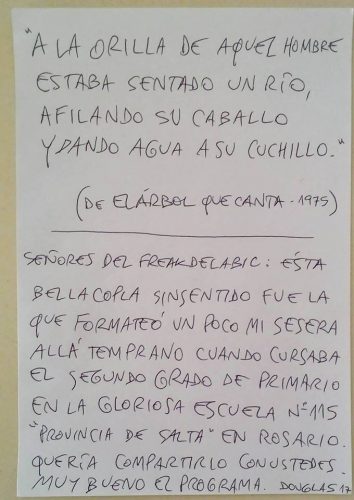 "A LA ORILLA DE AQUEL HOMBRE
ESTABA SENTADO UN RÍO,
AFILANDO SU CABALLO
Y DANDO AGUA A SU CUCHILLO."
(DE EL ÁRBOL QUE CANTA - 1975)
SEÑORES DEL FREAKDELABIC: ÉSTA
BELLA COPLA SINSENTIDO FUE LA
QUE FORMATEÓ UN POCO MI SESERA
ALLÁ TEMPRANO CUANDO CURSABA
EL SEGUNDO GRADO DE PRIMARIO
EN LA GLORIOSA ESCUELA Nº 115
"PROVINCIA DE SALTA" EN ROSARIO.
QUERÍA COMPARTIRLO CON USTEDES.
MUY BUENO EL PROGRAMA. DOUGLAS 17